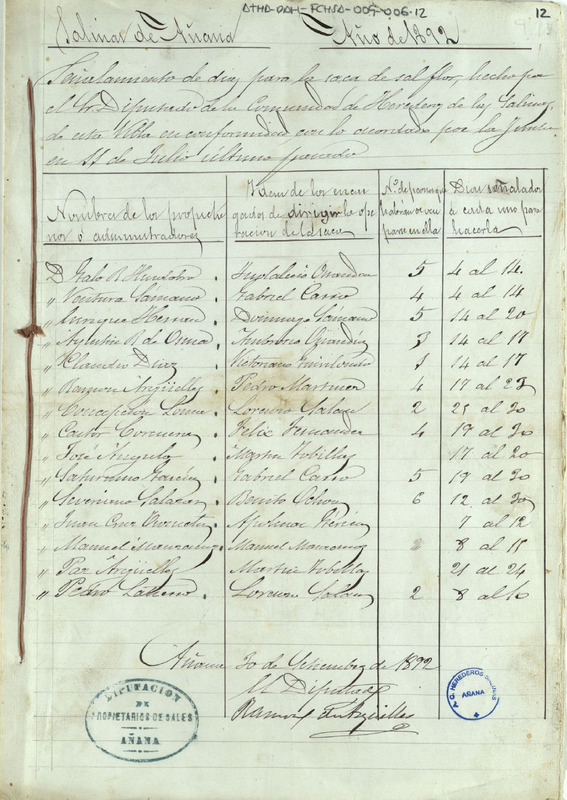 ATHA-DAH-FCHSA-005-006-12
12
Salinas de Añana Año de 1892
Señalamiento de dias para la saca de sal flor, hecho por
el Sr. Diputado de la Comunidad de Herederos de las Salinas
de esta Villa en conformidad con lo acordado por la Junta
en 11 de Julio último pasado
Nombres de los propieta
rios ó administradores
Idem de los encar
gados de dirigir la ope
racion de la saca
Nº de personas que
podrán ocu
parse en ella
Dias señalados
á cada uno para
hacerla
D. Italo R. 5 4 al 14
" Ventura Samano Gabriel Casso 4 4 al 14
" Enrique Herran Domingo Samano 5 14 al 20
" R. de Ocina Ambrosio 3 14 al 17
" Claudio Diaz Victoriano 14 al 17
" Ramon Argüelles Pedro Martinez 4 17 al 23
" Concepcion Lorenzo Salazar 2 25 al 30
" Castor Felix Fernandez 4 17 al 30
" Jose Angulo Martin Tobillas 17 al 20
" Saturnino Garcia Gabriel Casso 5 17 al 30
" Severiano Salazar Benito Ochoa 6 12 al 30
" Juan Cruz Apolinar 7 al 12
" Manuel Manzanos Manuel Manzanos 2 8 al 15
" Paz Argüelles Martin Tobillas 21 al 24
" Pedro Lorenzo Salazar 2 8 al 10
Añana 30 de Setiembre de 1892
El Diputado
Ramon Argüelles
DIPUTACION
DE
PROPIETARIOS DE SALES
AÑANA
HEREDEROS SALINAS
AÑANA